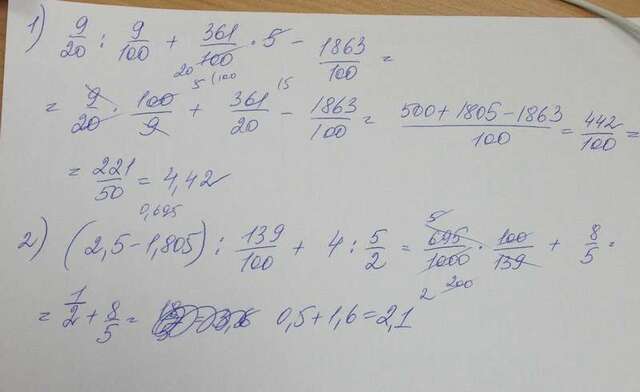 1) 9/20 : 9/100 + 361/100 · 5 - 1863/100 =
20 5 (100 15
= 9/20 · 100/9 + 361/20 - 1863/100 = (500+1805-1863)/100 = 442/100 =
= 221/50 = 4,42
0,695
2) (2,5-1,805) : 139/100 + 4 : 5/2 = 695/1000 · 100/139 + 8/5 =
5 2 200
= 1/2 + 8/5 = 0,5+1,6=2,1